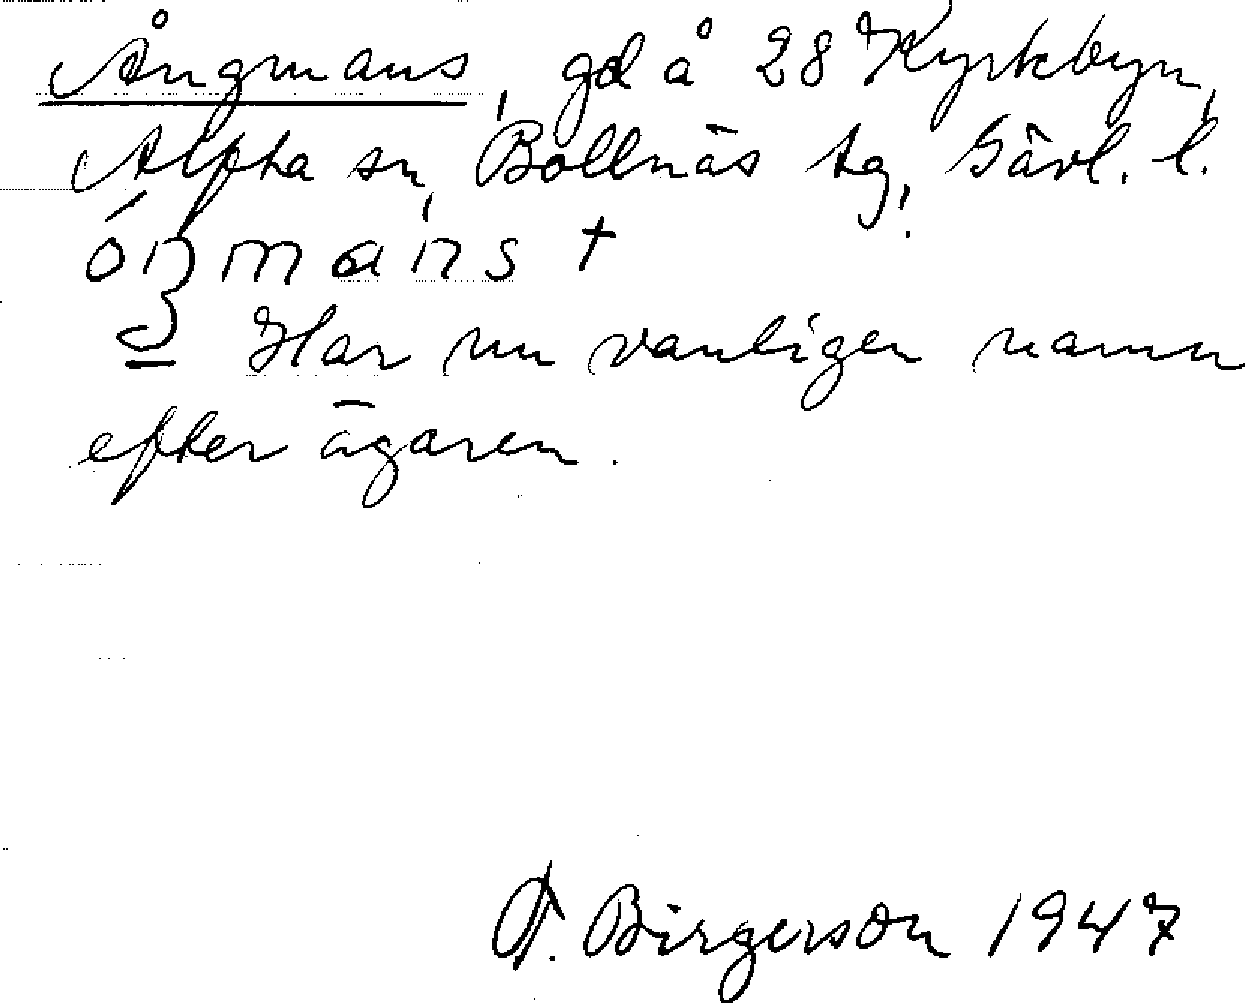 Ångmans, gd å 28 Kyrkbyn,
Alfta sn, Bollnäs tg, Gävl. l.
óŋmàns +
Har nu vanligen namn
efter ägaren.
Birgerson 1947